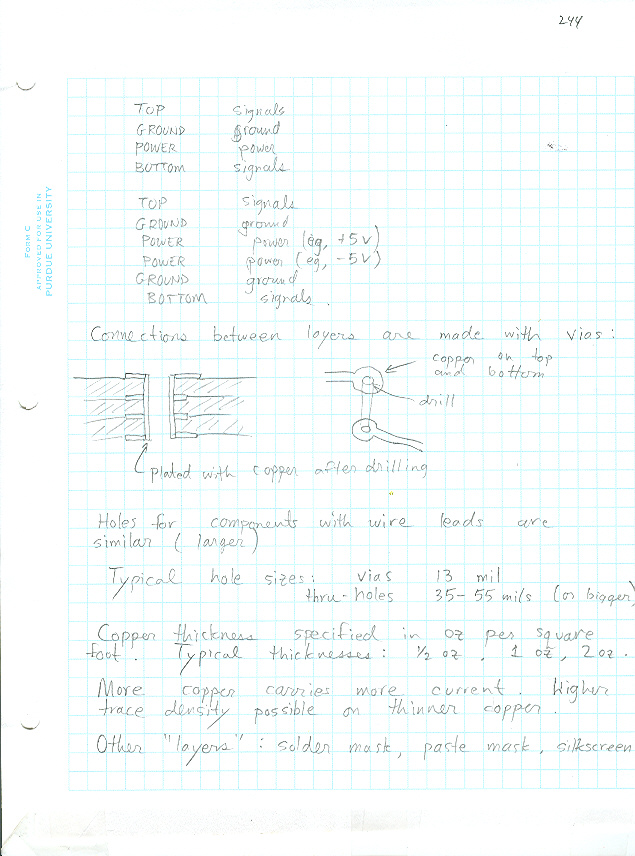 244
FORM C
APPROVED FOR USE IN
PURDUE UNIVERSITY
TOP signals
GROUND ground
POWER power
BOTTOM signals
TOP signals
GROUND ground
POWER power (eg, +5V)
POWER power (eg, -5V)
GROUND ground
BOTTOM signals.
Connections between layers are made with vias:
copper on top
and bottom
drill
plated with copper after drilling
Holes for components with wire leads are
similar (larger)
Typical hole sizes: vias 13 mil
thru-holes 35-55 mils (or bigger)
Copper thickness specified in oz per square
foot. Typical thicknesses: 1/2 oz, 1 oz, 2 oz.
More copper carries more current. Higher
trace density possible on thinner copper.
Other "layers": solder mask, paste mask, silkscreen